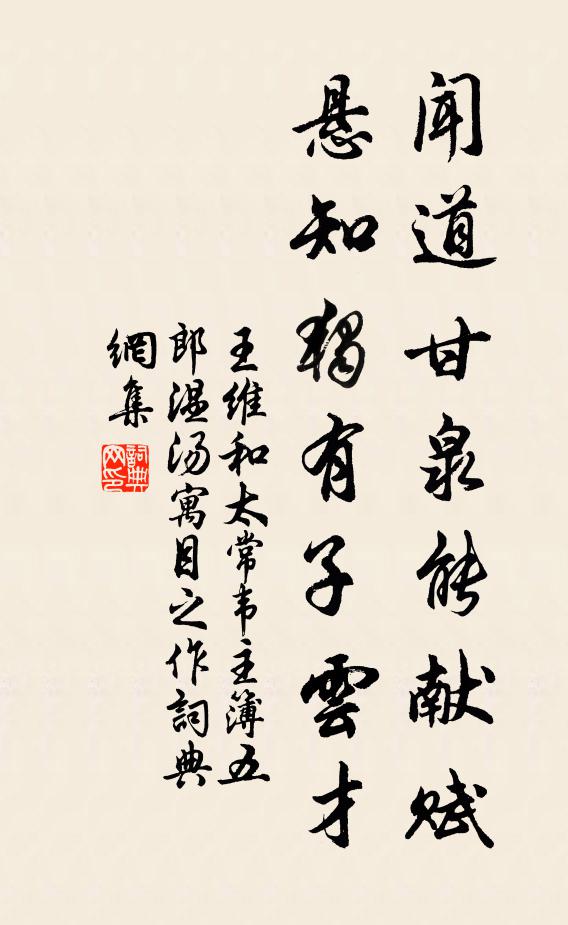 闻道甘泉能献赋
悬知独有子雲才
王维和太常韦主簿五
郎温汤寓目之作詞典
網集
詞典网印